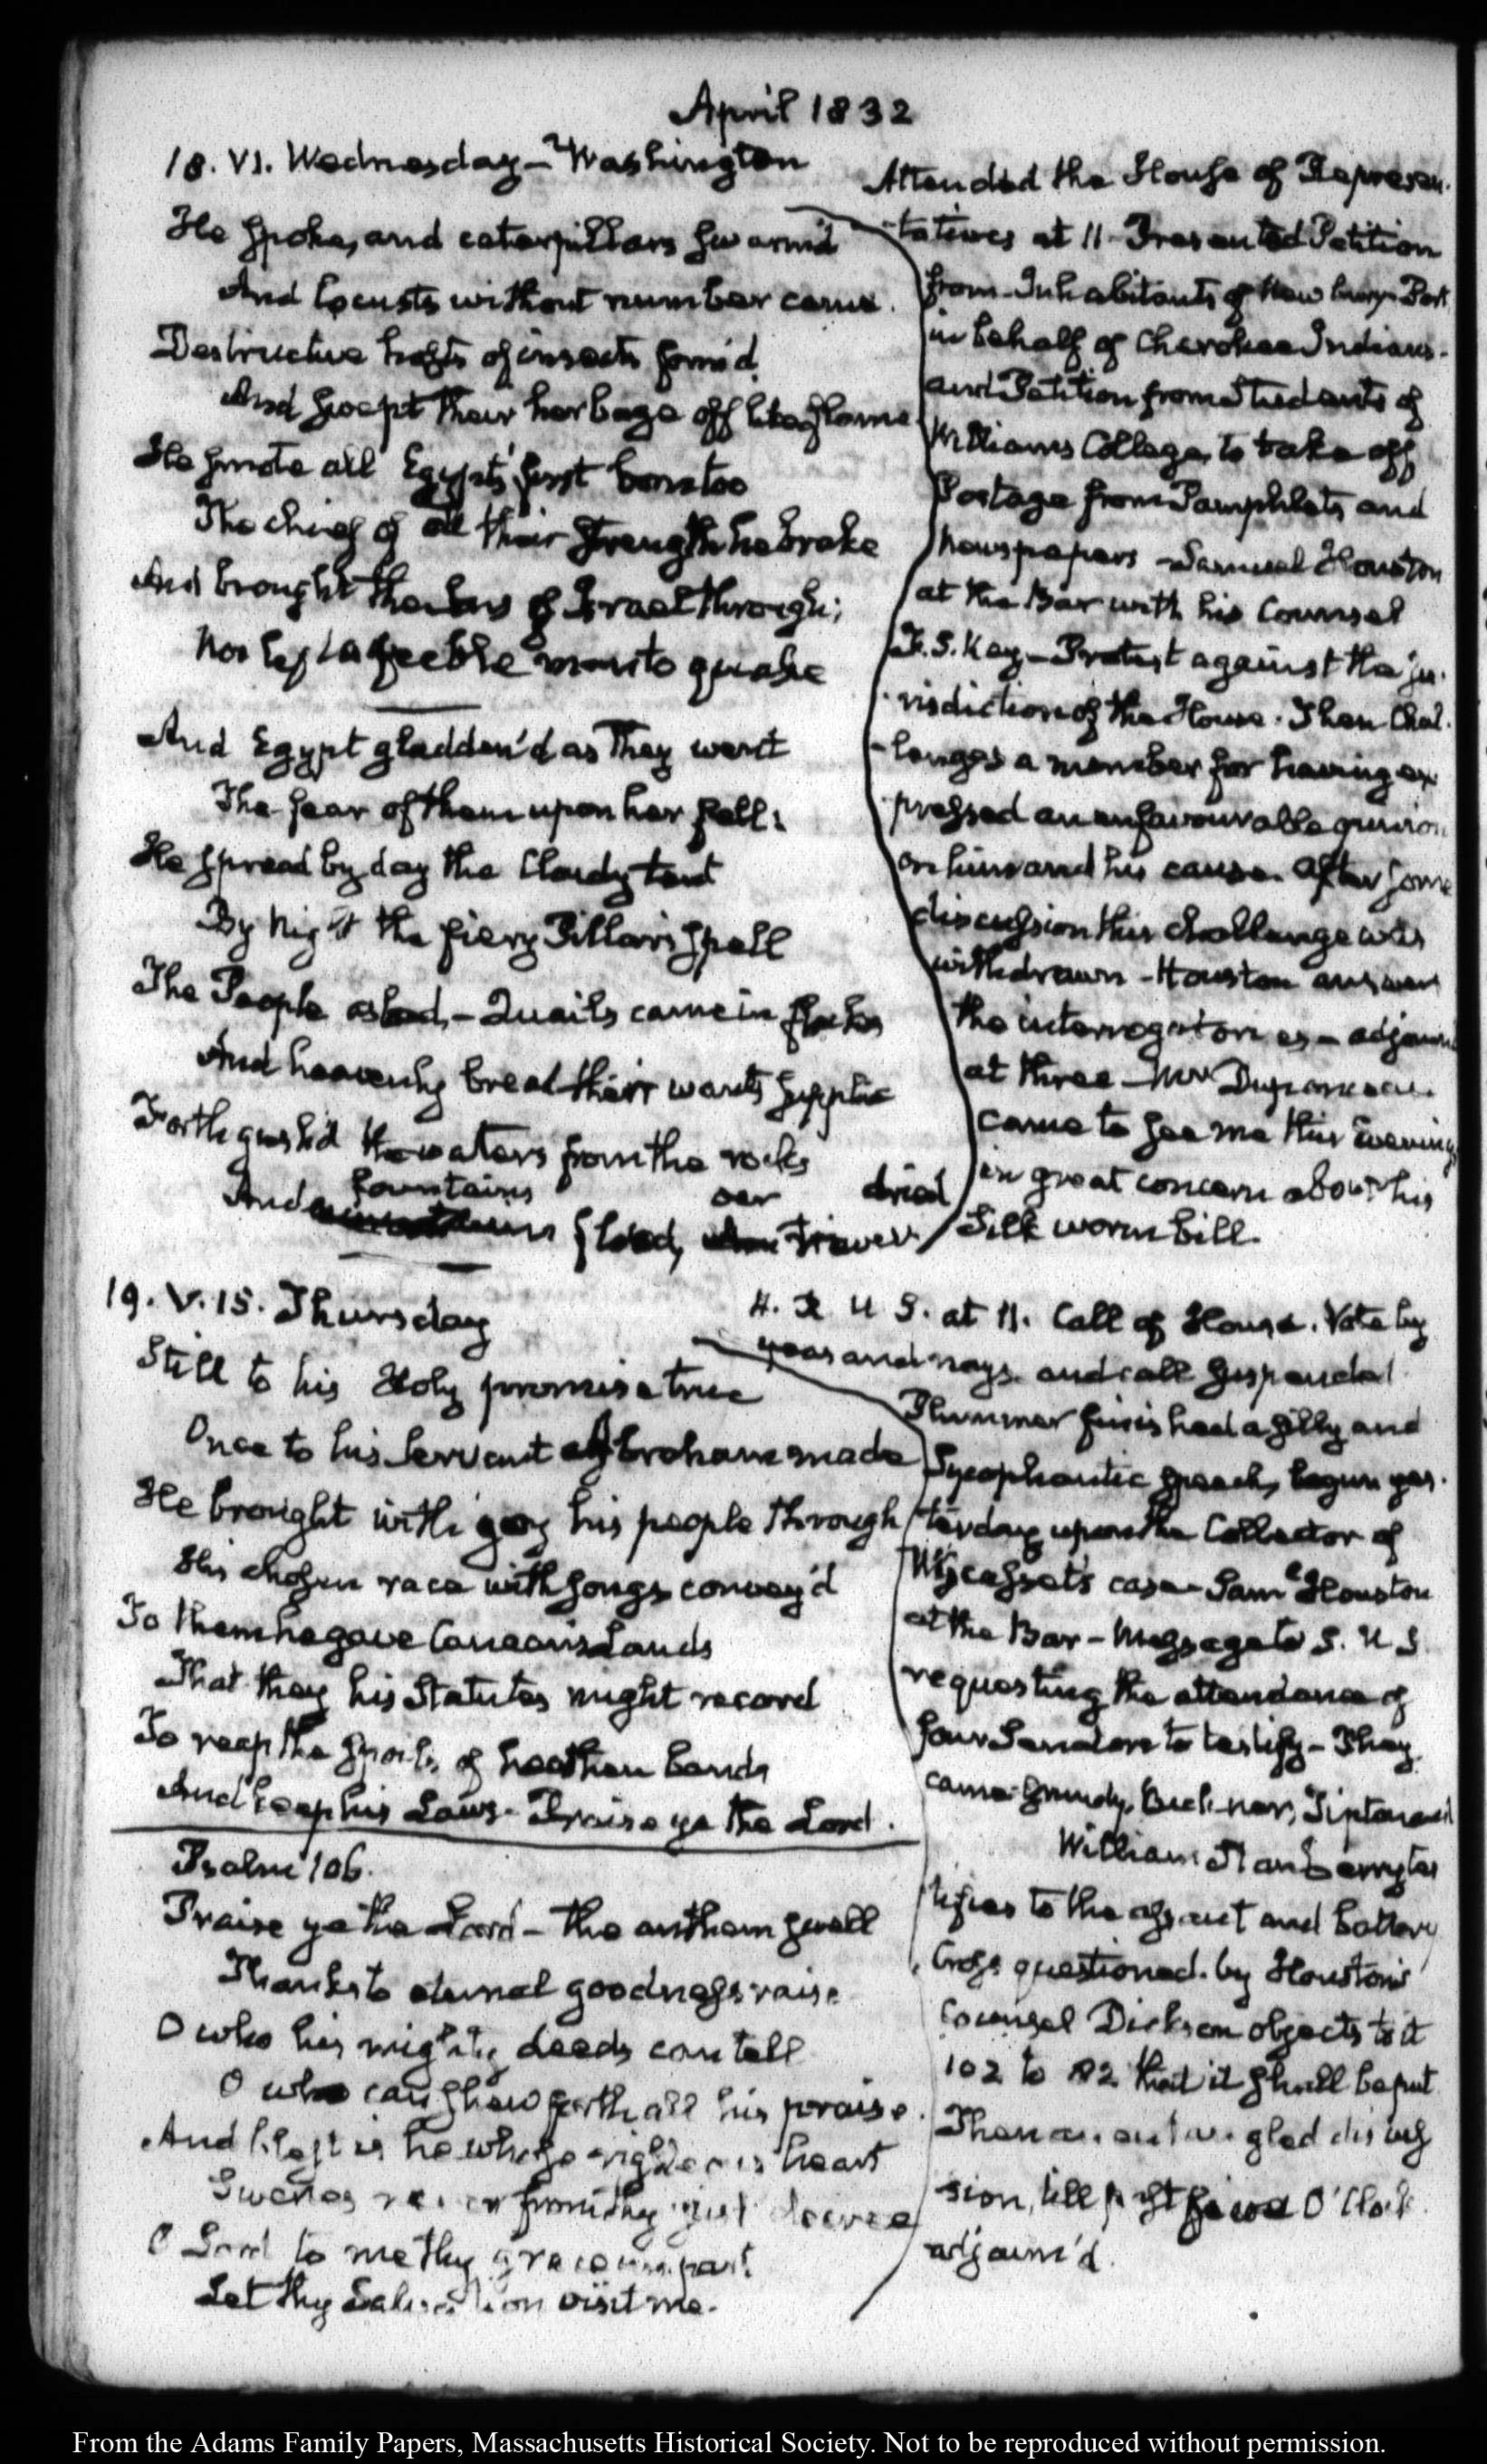 April 1832
18. VI. Wednesday – Washington
He spoke, and caterpillars swarm'd
And locusts without number came.
Destructive hosts of insects form'd
And swept their herbage off like flame
He smote all Egypt's first born too
The chief of all their strength he brake
And brought the Sons of Israel through;
Nor left a feeble man to quake
And Egypt gladden'd as they went
The fear of them upon her fell:
He spread by day the Cloudy tent
By night the fiery Pillar's spell
The People asked, – Quails came in flocks
And heavenly bread their wants supplie
Forth gush'd the waters from the rocks
fountains oer dried
And flowed, river
Attended the House of Represen-
-tatives at 11– Presented Petition
from Inhabitants of Newbury-Port
in behalf of Cherokee Indians–
and Petition from Students of
Williams College, to take off
Postage from Pamphlets and
Newspapers – Samuel Houston
at the Bar with his Counsel
F. S. Key – Protest against the ju-
risdiction of the House. Then Chal-
-lenges a member for having ex
pressed an unfavourable opinion
on him and his cause. After some
discussion this challenge was
withdrawn – Houston answers
the interrogatories – adjourn
at three – Mr Duponceau
came to see me this Evening
in great concern about his
Silk worm bill.
19. V. 15. Thursday
Still to his Holy promise true
Once to his Servant Abraham made
He brought with joy his people through
His chosen race with songs convey'd
To them he gave Canaan's Lands
That they his Statutes might record
To reap the spoils of heathen bands
And keep his Laws – Praise ye the Lord.
Psalm 106.
Praise ye the Lord – the anthem swell
Thanks to eternal goodness raise
O who his mighty deeds can tell
O who can shew forth all his praise.
And blest is he whose righteous heart
Swerves never from thy just decree
O Lord to me thy grace impart
Let thy Salvation visit me.
H. R U S. at 11. Call of House. Vote by
yeas and nays. and call suspended
Plummer finished a silly and
Sycophantic speech, begun yes-
terday upon the Collector of
Wiscasset's case – Saml Houston
at the Bar – Message to S. U S.
requesting the attendance of
four Senators to testify – They
came Grundy, Buckner, Tipton and
William Stanberry tes
tifies to the assault and battery
Cross questioned. by Houston's
Counsel Dickson objects to it
102 to 82 that it shall be put
Then an entangled discus
sion, till past O'Clock
adjourn'd.
From the Adams Family Papers, Massachusetts Historical Society. Not to be reproduced without permission.